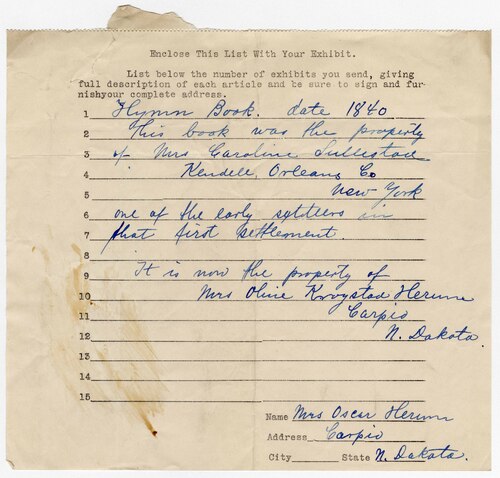 Enclose This List With Your Exhibit.
List below the number of exhibits you send, giving
full description of each article and be sure to sign and fur-
nishyour complete address.
1 Hymn Book. date 1840
2 This book was the property
3 of Mrs Caroline Sullestad
4 Kendell, Orleans Co
5 New York
6 one of the early settlers in
7 that first settlement.
8
9 It is now the property of
10 Mrs Oline Krogstad Herum
11 Carpio
12 N. Dakota.
13
14
15
Name Mrs Oscar Herum
Address Carpio
City State N. Dakota.